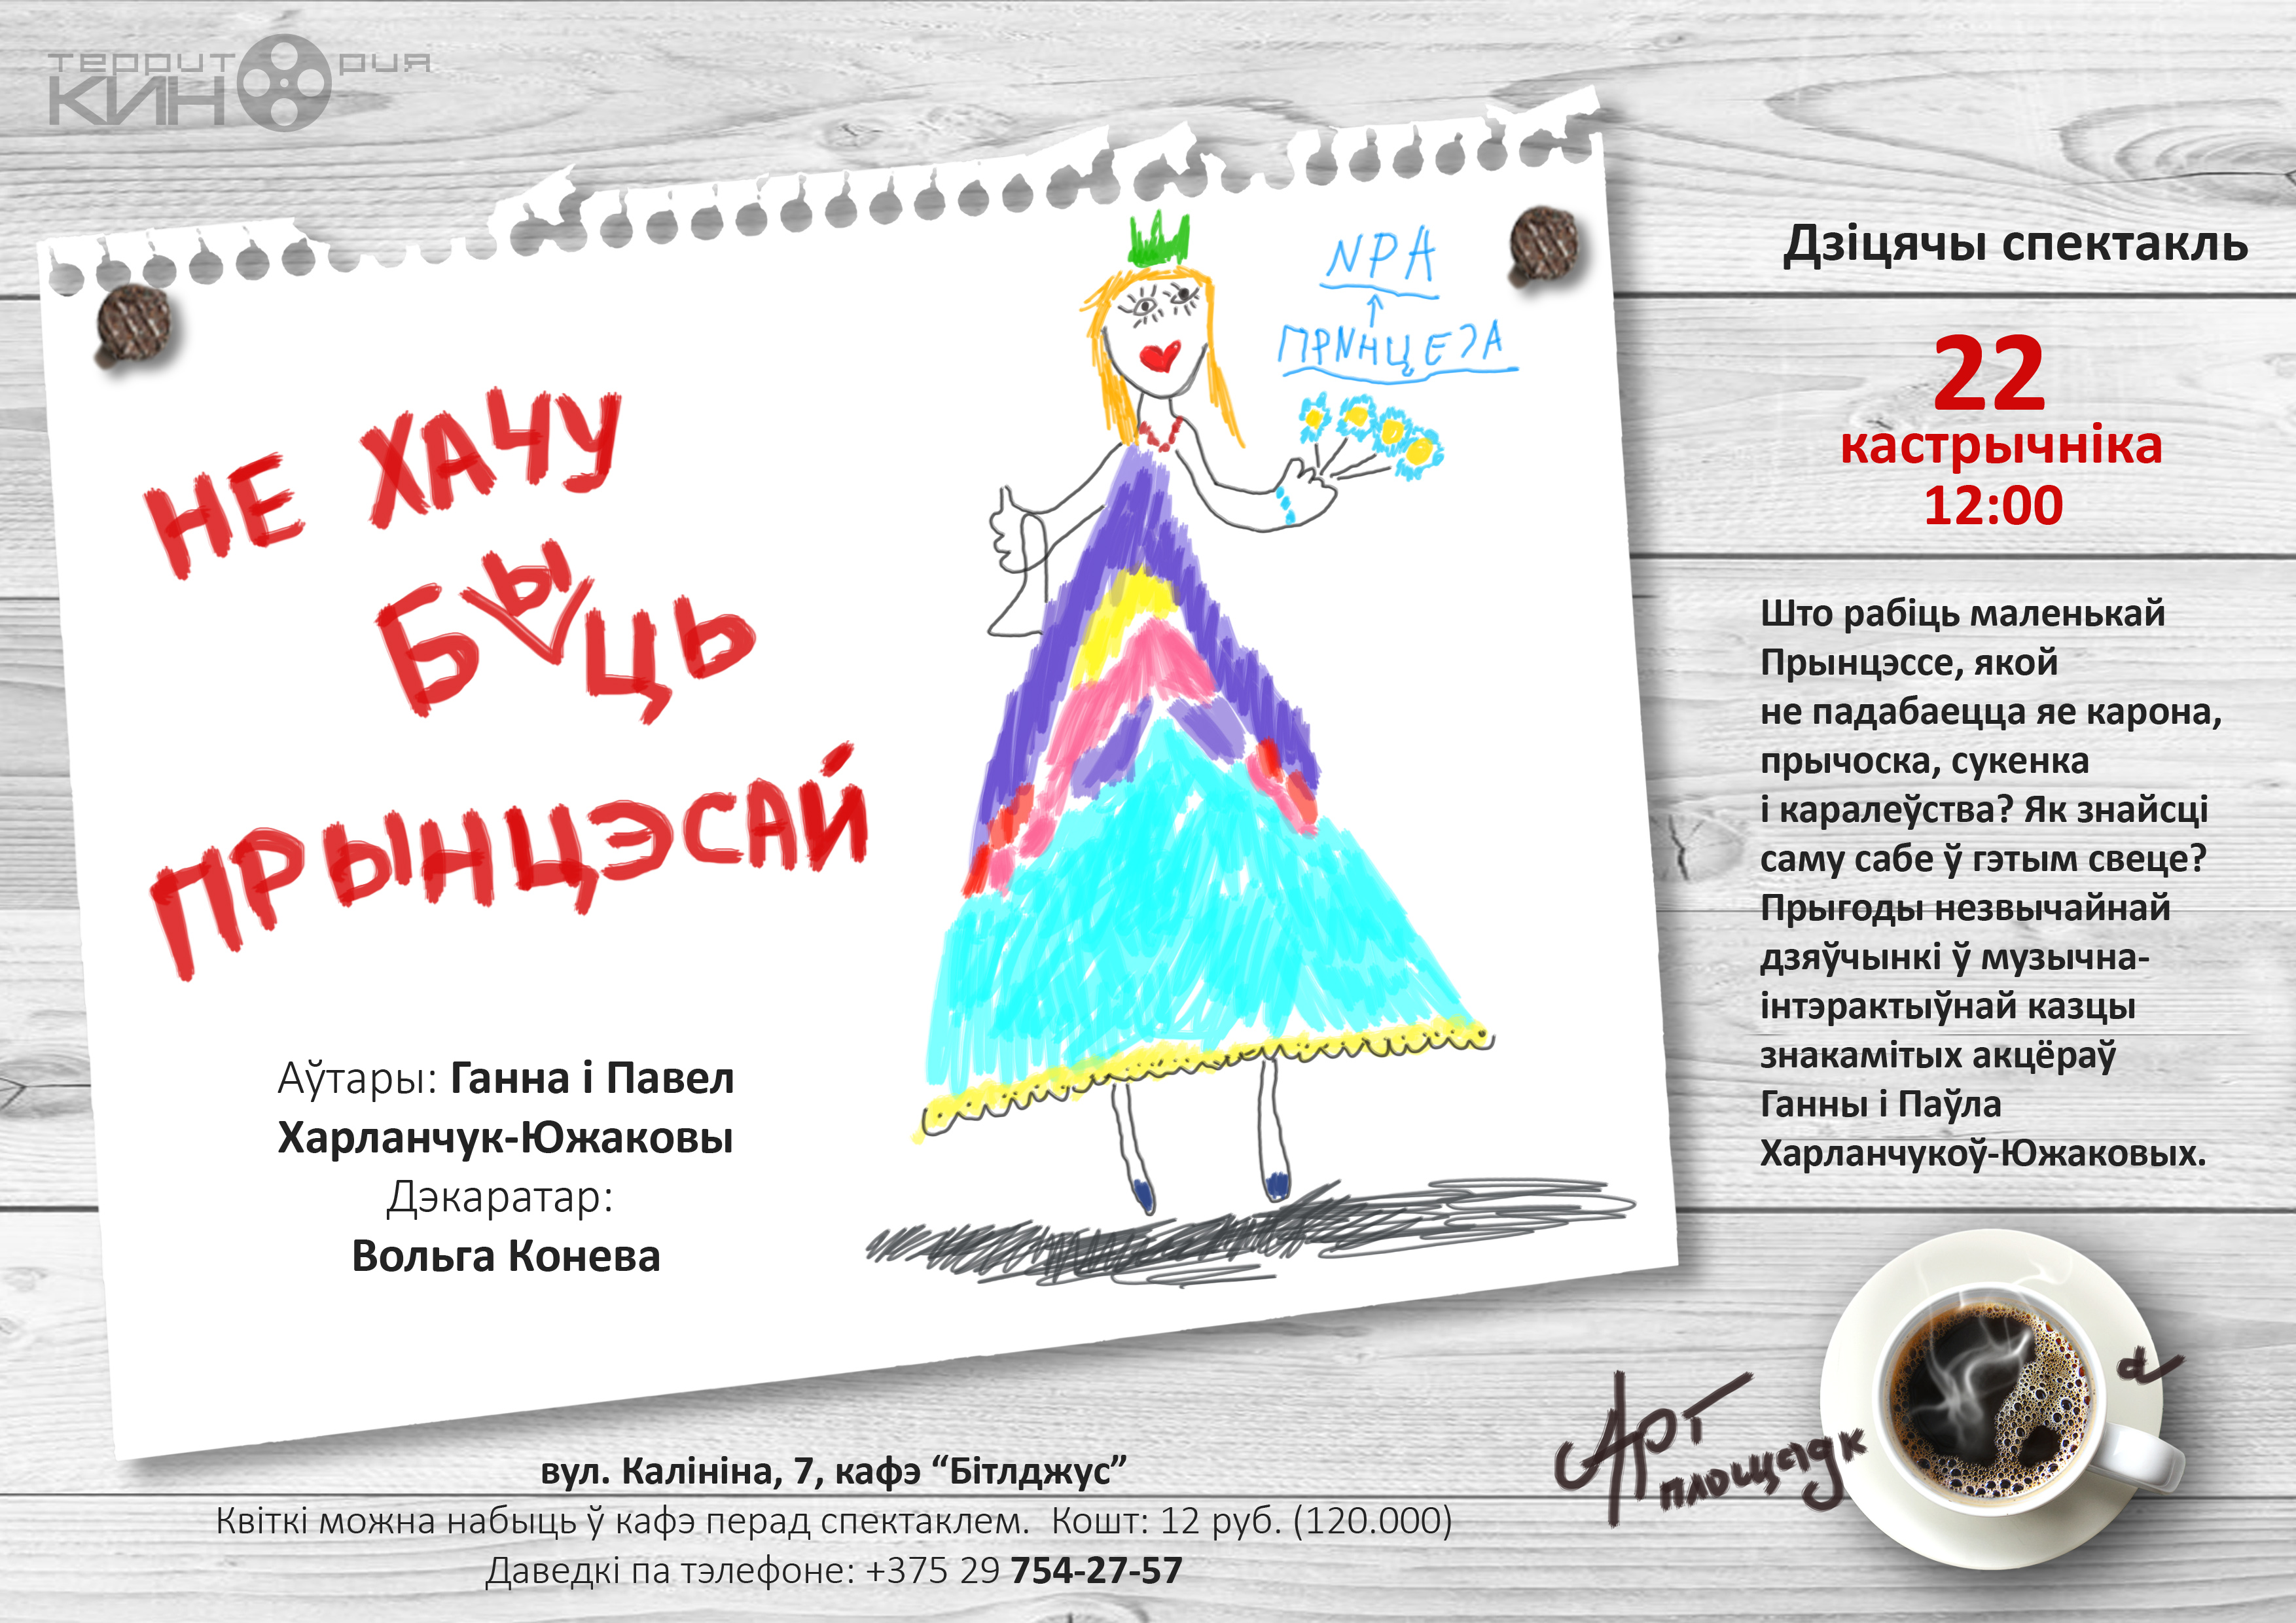 территория
КИНО
НЕ ХАЧУ
БЫЦЬ
ПРЫНЦЭСАЙ
NРА
ПРNНЦЕЗА
Аўтары: Ганна і Павел
Харланчук-Южаковы
Дэкаратар:
Вольга Конева
Дзіцячы спектакль
22
кастрычніка
12:00
Што рабіць маленькай
Прынцэссе, якой
не падабаецца яе карона,
прычоска, сукенка
і каралеўства? Як знайсці
саму сабе ў гэтым свеце?
Прыгоды незвычайнай
дзяўчынкі ў музычна-
інтэрактыўнай казцы
знакамітых акцёраў
Ганны і Паўла
Харланчукоў-Южаковых.
вул. Калініна, 7, кафэ “Бітлджус”
Квіткі можна набыць ў кафэ перад спектаклем. Кошт: 12 руб. (120.000)
Даведкі па тэлефоне: +375 29 754-27-57
Арт
площадк